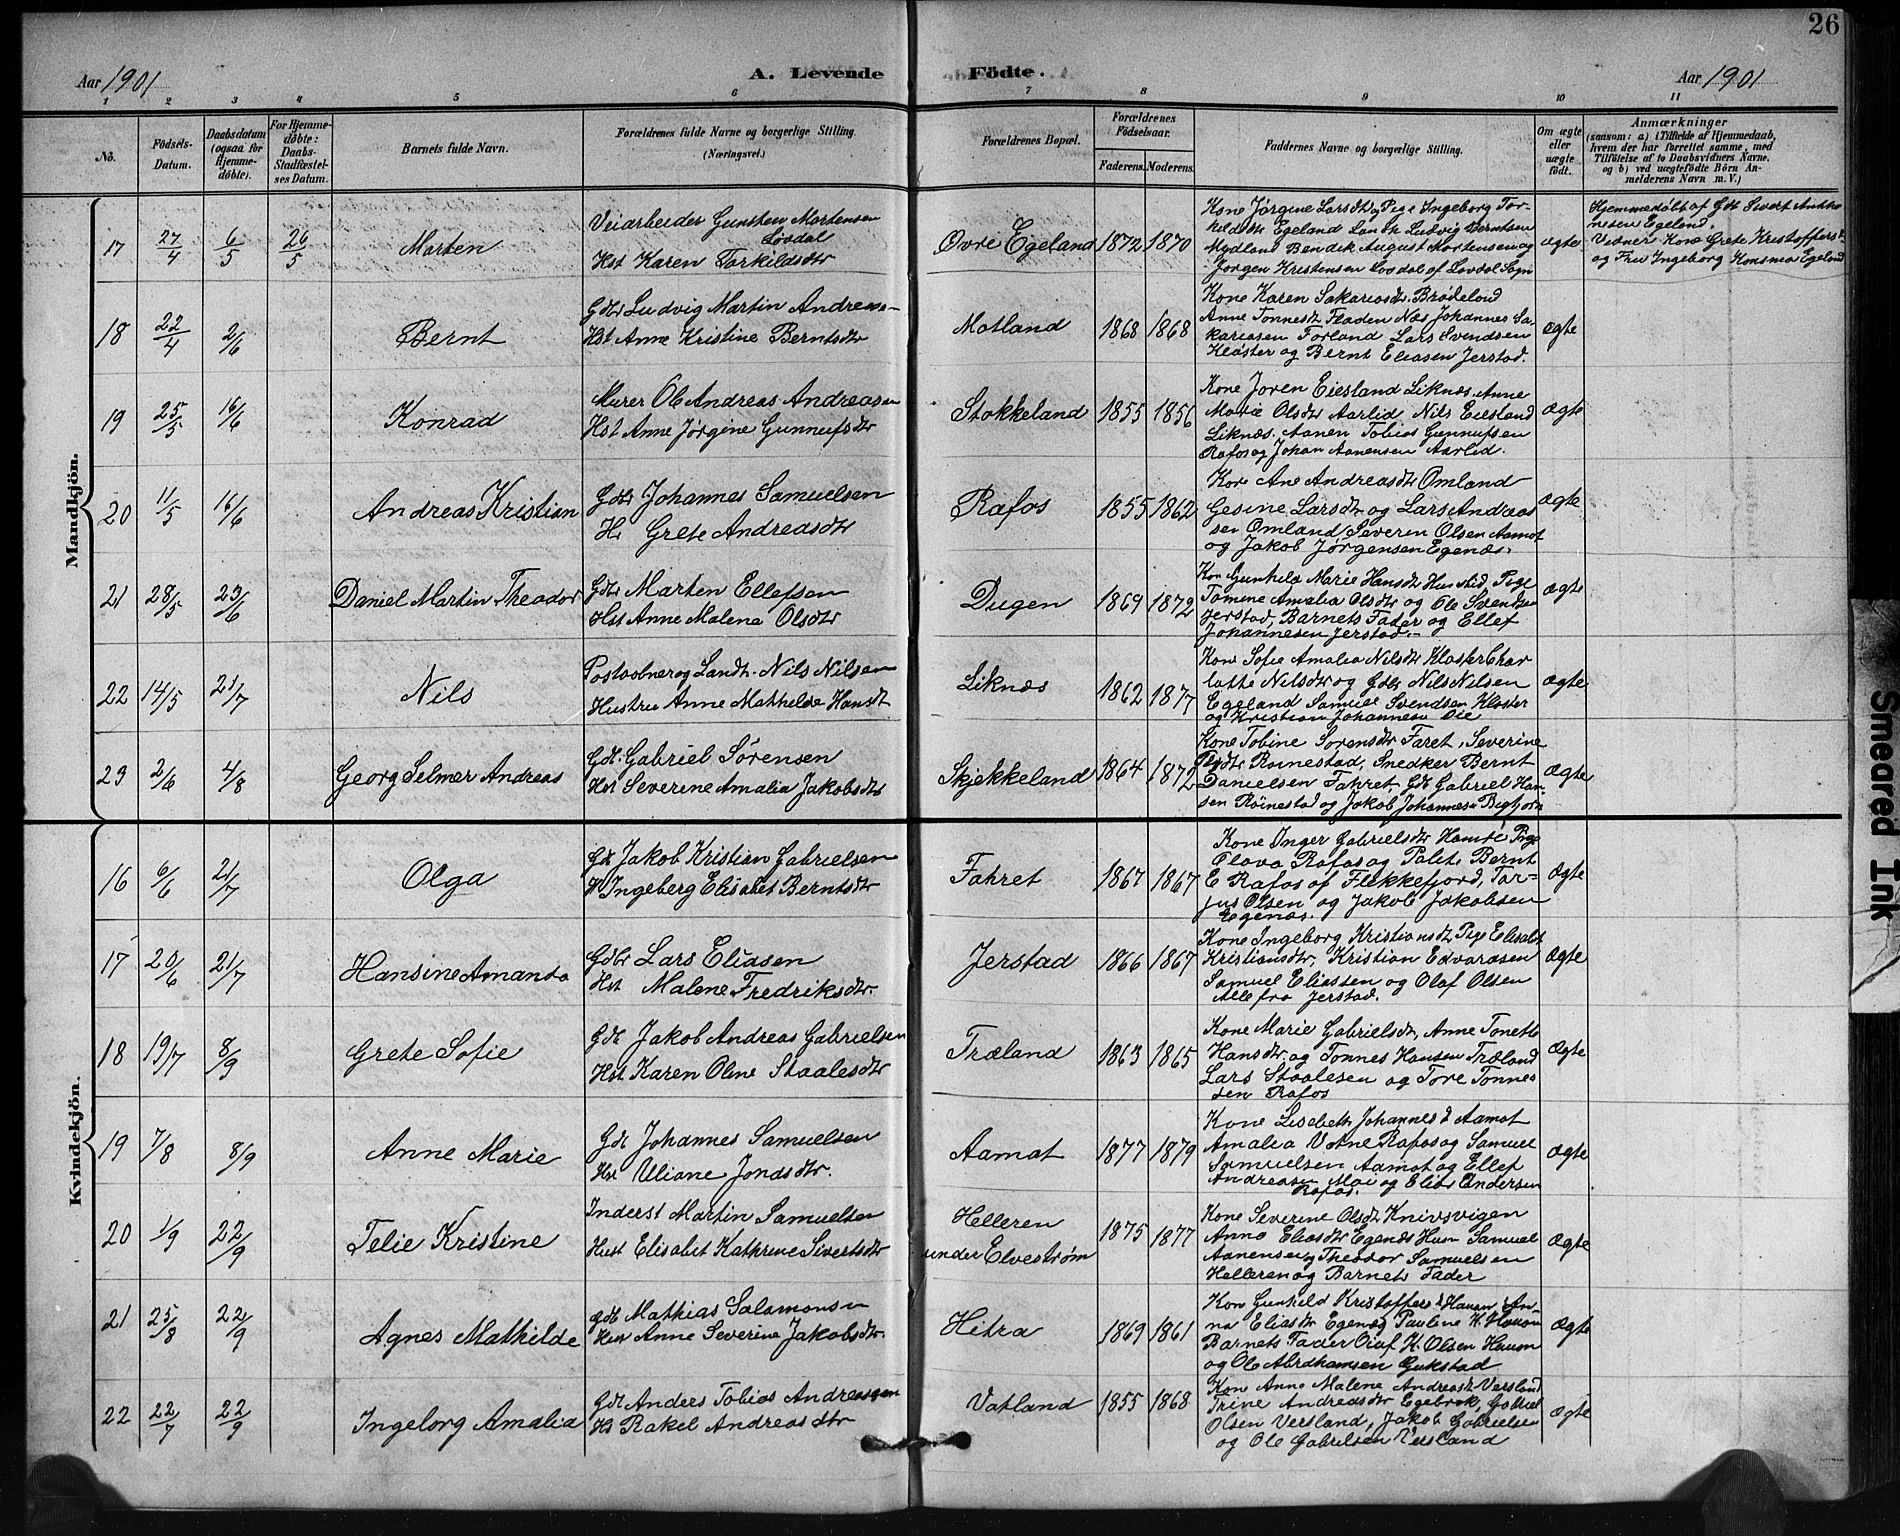 26
Aar 1901
A. Levende Födte.
Aar 1901
1 2 3 4 5 6 7 8 9 10 11
No.
Födsels-Datum.
Daabsdatum (ogsaa for Hjemme-döbte).
For Hjemme-döbte: Daabs-Stadfæstel-ses Datum.
Barnets fulde Navn.
Forældrenes fulde Navne og borgerlige Stilling. (Næringsvei.)
Forældrenes Bopæl.
Forældrenes Födselsaar.
Faderens. Moderens.
Faddernes Navne og borgerlige Stilling.
Om ægte eller uægte födt.
Anmærkninger
(saasom: a) i Tilfælde af Hjemmedaab,
hvem der har forrettet samme, med
Tilföielse af to Daabsvidners Navne,
og b) ved uægtefödte Börn An-
melderens Navn m. V.)
Mandkjön.
17 27/4 6/5 26/5 Marten
Veiarbeider Gunsten Martensen
Lövdal
Hst Karen Torkildsdtr
Øvre Egeland 1872 1870
Kone Jørgine Larsdtr, Pige Ingeborg Tor-
kildsdtr Egeland Landh. Ludvig Berntsen
Mydland Bendik August Mortensen og
Jørgen Kristensen Lovdal af Lovdal Sogn
ægte
Hjemmedøbt af Gdt Sivert
Egeland.
Vidner Kone Grete Kristoffers
og Fru Ingeborg Egeland
18 22/4 2/6 Bernt
Gdbr Ludvig Martin Andreas-
Hst Anne Kristine Berntsdtr
Motland 1868 1868
Kone Karen Sakariasdtr. Brødelond
Anne Tonnesdt Fladen Næs Johannes Sa-
kariasen Forland Lars Svendsen
Kløster og Bernt Eliasen Jerstad.
ægte
19 25/5 16/6 Konrad
Murer Ole Andreas Andreasen
Hst Anne Jørgine Gunnufsdtr
Stokkeland 1855 1856
Kone Joren Eiesland Liknæs, Anne
Marie Olsdtr Aarlid, Nils Eiesland
Liknæs. Aanen Tobias Gunnufsen
Rafos og Johan Aanensen Aarlid.
ægte
20 11/5 16/6 Andreas Kristian
Gdbr Johannes Samuelsen
H. Grete Andreasdtr
Rafos 1855 1862
Kone Ane Andreasdtr Omland
Gesine Larsdtr og Lars Andreas
sen Omland Severin Olsen Aamot
og Jakob Jørgensen Egenæs.
ægte
21 28/5 23/6 Daniel Martin Theodor
Gdbr Marten Ellefsen
Hst Anne Malene Olsdtr
Dugen 1869 1872
Kon Gunhild Marie Hansdt Pige
Tomine Amalia Olsdtr og Ole Svendsen
Jerstad, Barnets Fader og Ellef
Johannesen Jerstad.-
ægte
22 14/5 21/7 Nils
Postaabner og Landh. Nils Nilsen
Hustru Anne Mathilde Hansdt
Liknæs 1862 1877
Kone Sofie Amalia Nilsdtr Kloster Char
lotte Nilsdtr og Gdbr Nils Nilsen
Egeland Samuel Svendsen Kloster
og Kristian Johannesen Øie
ægte
23 2/6 4/8 Georg Selmer Andreas
Gdt. Gabriel Sørensen
Hst Severine Amalia Jakobsdtr
Skjekkeland 1864 1872
Kone Tobine Sorensdtr Faret, Severine
Roinestad, Snedker Bernt
Danielsen Fahret Gdt Gabriel Han-
sen Röinestad og Jakob Johannesen
ægte
Kvindekjön.
16 6/6 21/7 Olga
Gdt Jakob Kristian Gabrielsen
Hst Ingeberg Elisabet Berntsdtr
Fahret 1867 1867
Kone Inger Gabrielsdtr Hamre Pige
Flava Rafos og Bernt
E Rafos af Flekkefjord, Tar-
jus Olsen og Jakob Jakobsen
Egenæs.
ægte
17 20/6 21/7 Hansine Amanda
Gdbr Lars Eliasen
Hst Malene Fredriksdtr.
Jerstad 1866 1867
Kone Ingeborg Kristiansdt Pige Elisabet
Kristiansdtr, Kristian Edvardsen
Samuel Eliassen og Olaf Olsen
Alle fra Jerstad.
ægte
18 19/7 8/9 Grete Sofie
Gdt Jakob Andreas Gabrielsen
Hst Karen Oline Staalesdtr
Træland 1863 1865
Kone Marie Gabrielsdtr, Anne Tonette
Hansdtr og Tonnes Hansen Træland
Lars Staalesen og Tore Tonnes
sen Rafos
ægte
19 7/8 8/9 Anne Marie
Gdt Johannes Samuelsen
Hst Uliane Jonasdtr.
Aamot 1877 1879
Kone Lisebeth Johannesd Aamot
Amalia Votne Rafos og Samuel
Samuelsen Aamot og Ellef
Andreasen Moi og Elias Andersen
Rafos.
ægte
20 1/9 22/9 Telie Kristine
Inderst Martin Samuelsen
Hust Elisabet Kathrine Sivertsdtr
Helleren
under Elvestrøm 1875 1877
Kone Severine Olsdt Knivsvigen
Anna Eliasdtr Egenæs Husm Samuel
Aanensen og Theodor Samuelsen
Helleren og Barnets Fader
ægte
21 25/8 22/9 Agnes Mathilde
Gdt Mathias Salamonsen
Hust Anne Severine Jakobsdtr.
Hitra 1869 1861
Kon Gunhild Kristoffersd Hauan An-
na Eliasdtr Egenæs Pauline K. Hauan
Barnets Fader Olaf K. Olsen Hauan
og Ole Abrahamsen Gukstad
ægte
22 22/7 22/9 Ingeborg Amalia
Gdt Anders Tobias Andreassen
Hst Rakel Andreasdtr
Vatland 1855 1868
Kone Anne Malene Andreasdt Versland
Trine Andreasdtr Egebrok, Gabriel
Olsen Versland, Jakob Gabrielsen
og Ole Gabrielsen Versland
ægte
Smeared Ink